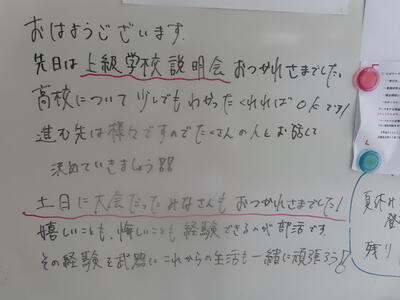 おはようございます.
先日は上級学校説明会おつかれさまでした。
高校について少しでもわかってくれればOKです!
進む先は様々ですのでたくさんの人とお話して
決めていきましょう
土日に大会だったみなさんもおつかれさまでした!
嬉しいことも、悔しいことも経験できるのが部活です
その経験を武器にこれからの生活も一緒に頑張ろう!
夏休み
残り